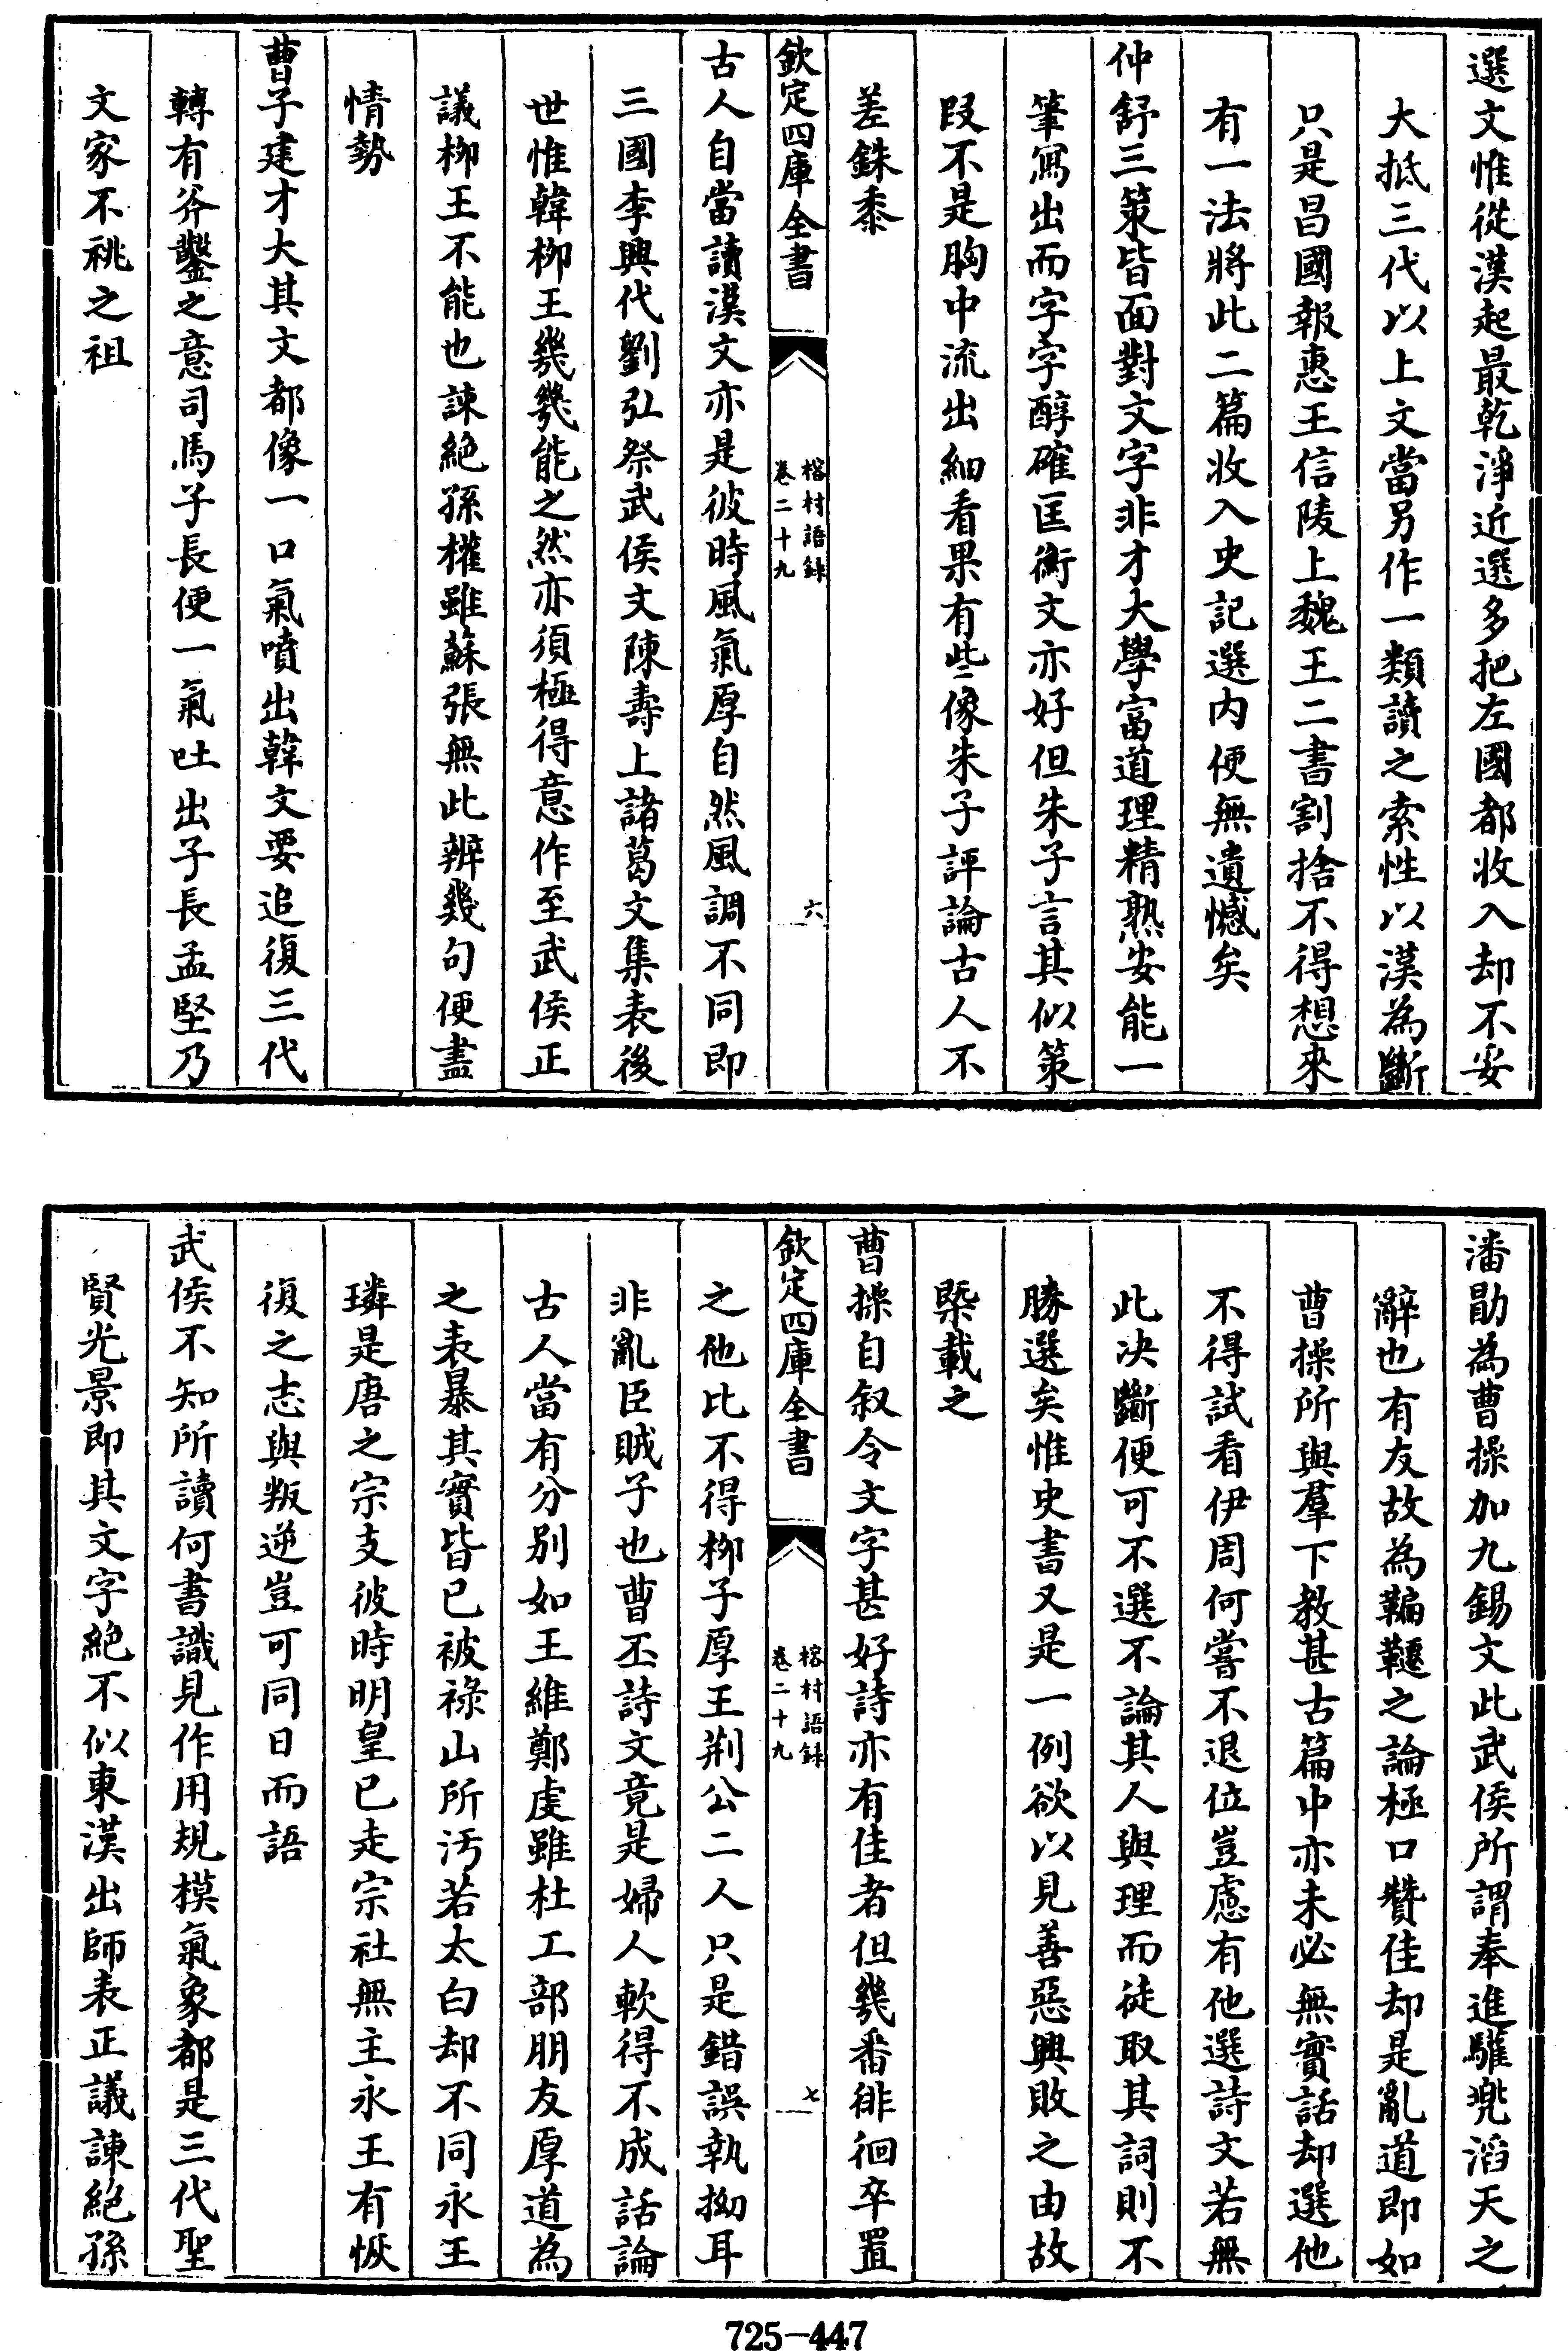 選文惟從漢起最乾淨近選多把左國都收入却不妥
大抵三代以上文當另作一類讀之索性以漢為斷
只是昌國報惠王信陵上魏王二書割捨不得想來
有一法將此二篇收入史記選内便無遺憾矣
仲舒三策皆面對文字非才大學富道理精熟安能一
筆寫出而字字醇確匡衡文亦好但朱子言其似策
段不是胸中流出細看果有些像朱子評論古人不
差銖黍
欽定四庫全書
榕村語録
卷二十九
六
古人自當讀漢文亦是彼時風氣厚自然風調不同即
三國李興代劉弘祭武侯文陳壽上諸葛文集表後
世惟韓柳王幾幾能之然亦須極得意作至武侯正
議柳王不能也諫絶孫權雖蘇張無此辨幾句便盡
情勢
曹子建才大其文都像一口氣噴出韓文要追復三代
轉有斧鑿之意司馬子長便一氣吐出子長孟堅乃
文家不祧之祖
潘勖為曹操加九錫文此武侯所謂奉進驩兜滔天之
辭也有友故為翩韆之論極口贊佳却是亂道即如
曹操所與羣下教甚古篇中亦未必無實話却選他
不得試看伊周何嘗不退位豈慮有他選詩文若無
此决斷便可不選不論其人與理而徒取其詞則不
勝選矣惟史書又是一例欲以見善惡興敗之由故
槩載之
曹操自叙令文字甚好詩亦有佳者但幾番徘徊卒置
欽定四庫全書
榕村語録
卷二十九
七
之他比不得柳子厚王荆公二人只是錯誤執拗耳
非亂臣賊子也曹丕詩文竟是婦人軟得不成話論
古人當有分别如王維鄭虔雖杜工部朋友厚道為
之表暴其實皆已被祿山所汚若太白却不同永王
璘是唐之宗支彼時明皇已走宗社無主永王有恢
復之志與叛逆豈可同日而語
武侯不知所讀何書識見作用規模氣象都是三代聖
賢光景即其文字絶不似東漢出師表正議諫絶孫
725-447